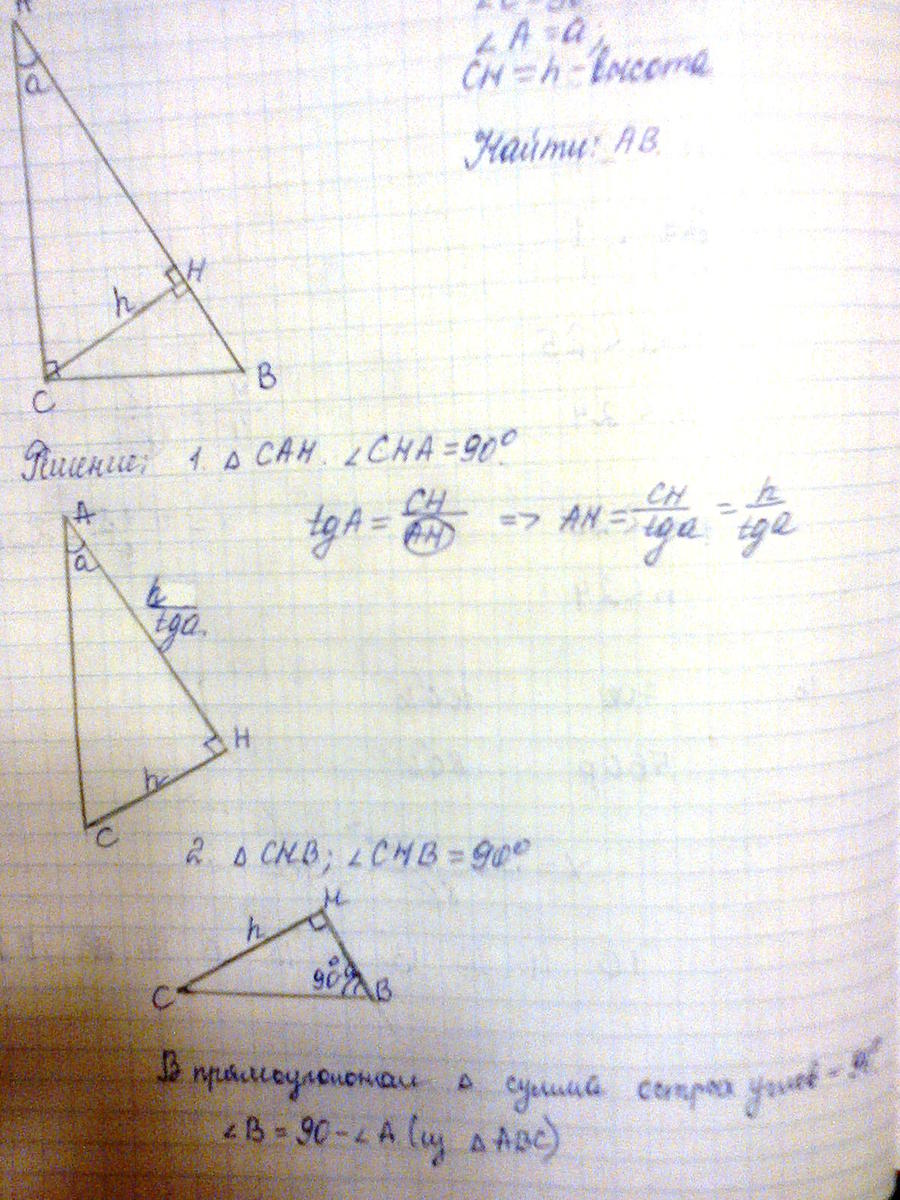 ∠A = a;
CH = h - высота
Найти: AB.
A
a
H
h
C
B
Решение: 1. △ CAH. ∠CHA = 90°.
tgA = CH/AH => AH = CH/tga = h/tga
A
a
h/tga.
H
h
C
2. △ CHB; ∠CHB = 90°
H
h
C
B
В прямоугольном △ сумма острых углов - 90°.
∠B = 90 - ∠A (из △ABC)